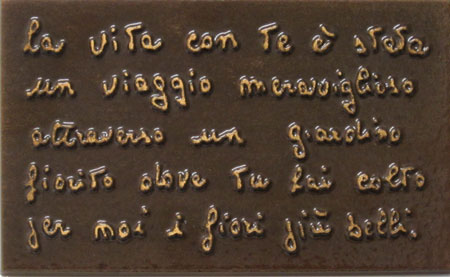 la vita con te è stata
un viaggio meraviglioso
attraverso un giardino
fiorito dove tu hai colto
per noi i fiori più belli.